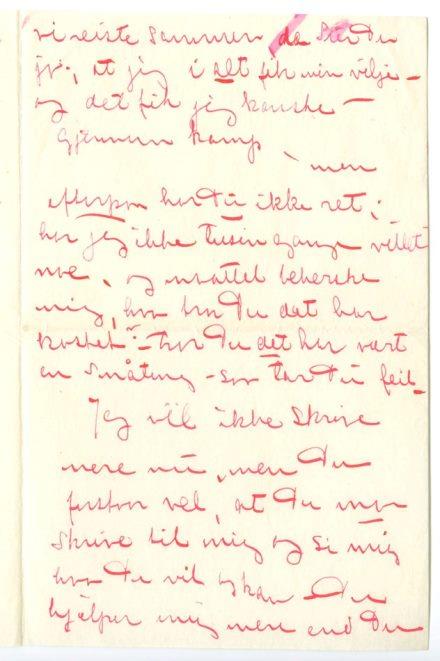 vi reiste sammen da sier du
jo, at jeg i alt fik min vilje –
og det fik jeg kanske –
Gjennem kamp
men
efterpaa har du ikke ret;
har jeg ikke tusin gange villet
noe, og maattet beherske
mig, hva tror Du det har
kostet – tror Du det har vært
en småting – saa tar Du feil –
Jeg vil ikke skrive
mere nu, men Du
forstaar vel, at Du maa
skrive til mig og si mig
hva Du vil og kan Du
hjælper mig mere end Du